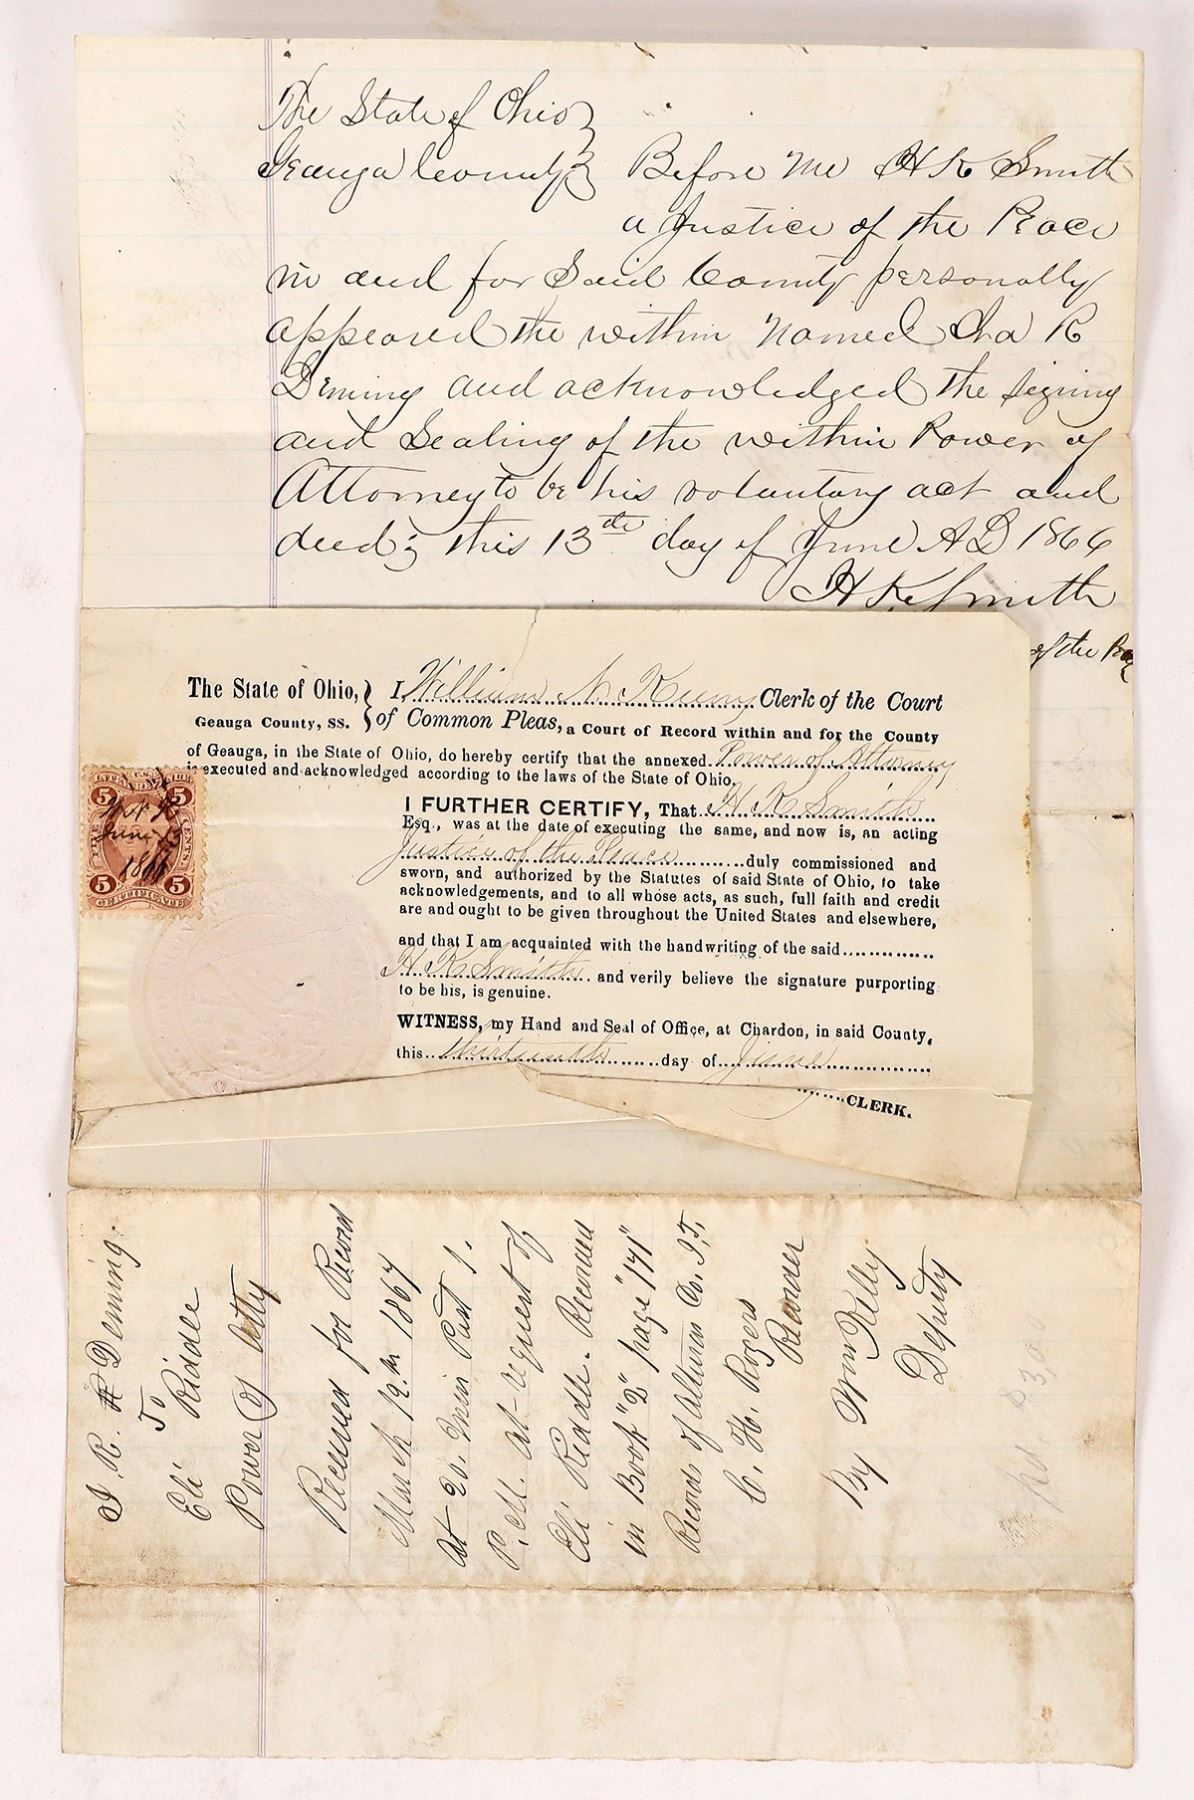 The State of Ohio }
Geauga County } Before Me H K Smith
a Justice of the Peace
in and for Said County personally
appeared the within Named Ira R
Deming and acknowledged the signing
and Sealing of the within Power of
Attorney to be his voluntary act and
deed; this 13th day of June A D 1866
H K Smith
of the Peace
The State of Ohio, } I, William N. Keeny Clerk of the Court
Geauga County, SS. } of Common Pleas, a Court of Record within and for the County
of Geauga, in the State of Ohio, do hereby certify that the annexed Power of Attorney
is executed and acknowledged according to the laws of the State of Ohio.
I FURTHER CERTIFY, That H. K. Smith
Esq., was at the date of executing the same, and now is, an acting
Justice of the Peace duly commissioned and
sworn, and authorized by the Statutes of said State of Ohio, to take
acknowledgements, and to all whose acts, as such, full faith and credit
are and ought to be given throughout the United States and elsewhere,
and that I am acquainted with the handwriting of the said
H. K. Smith and verily believe the signature purporting
to be his, is genuine.
WITNESS, my Hand and Seal of Office, at Chardon, in said County,
this thirteenth day of June
CLERK.
5 5
June 13
1866
5 5
CERTIFICATE
I R. Deming.
To
Eli Riddle
Power of Atty
Received for Record
March 12th 1867
At 20. Min Past 1.
P.M. At request of
Eli Riddle. Recorded
in Book "2" page "171"
Records of Alturas Co. I,T,
C. H. Rogers
Recorder
By Wm Kelly
Deputy
Pd $3,00